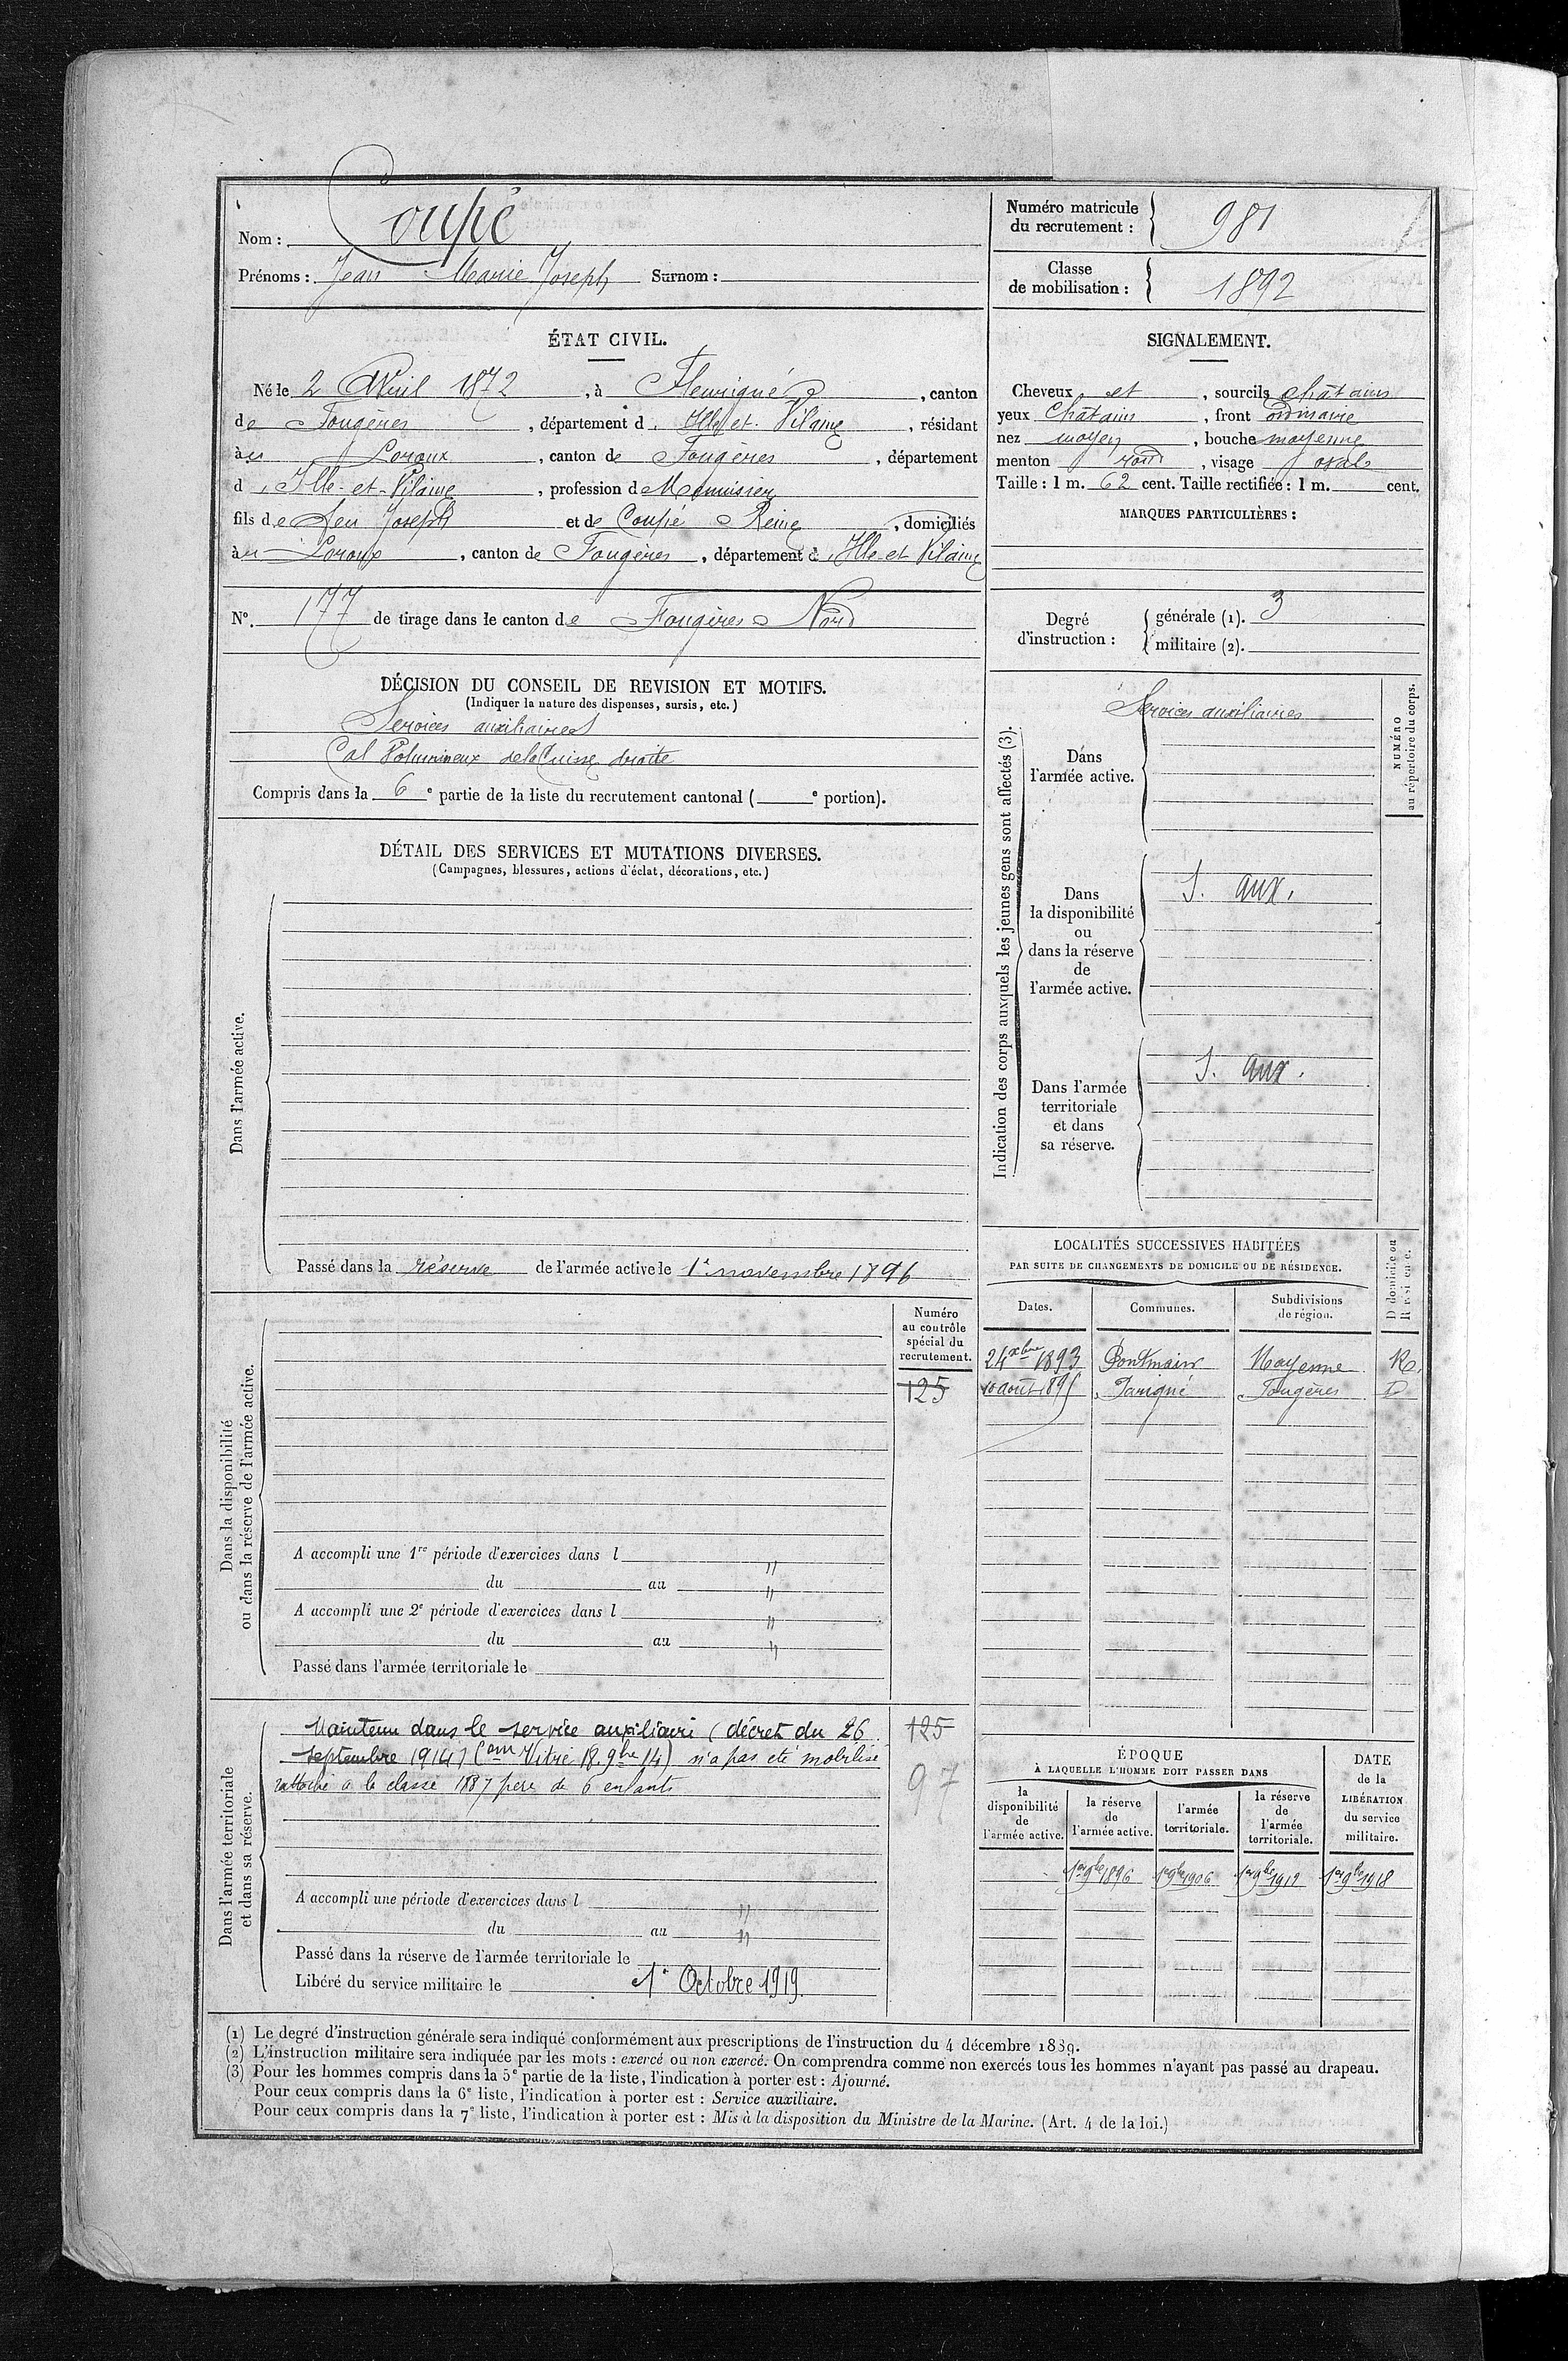 Nom : Coupé
Prénoms : Jean Marie Joseph Surnom :
Numéro matricule du recrutement : 981
Classe de mobilisation : 1892
ÉTAT CIVIL.
Né le 2 Avril 1872, à Fleurigné, canton
de Fougères, département d'Ille et Vilaine, résidant
au Loroux, canton de Fougères, département
d'Ille-et-Vilaine, profession de Menuisier
fils de feu Joseph et de Coupé Reine, domiciliés
au Loroux, canton de Fougères, département d'Ille-et Vilaine
N°. 177 de tirage dans le canton de Fougères Nord
SIGNALEMENT.
Cheveux et, sourcils châtains
yeux châtains, front ordinaire
nez moyen, bouche moyenne
menton rond, visage ovale
Taille : 1 m. 62 cent. Taille rectifiée : 1 m. cent.
MARQUES PARTICULIÈRES :
Degré d'instruction : générale (1). 3
militaire (2).
DÉCISION DU CONSEIL DE REVISION ET MOTIFS.
(Indiquer la nature des dispenses, sursis, etc.)
Services auxiliaires
Cal Volumineux de la Cuisse droite
Compris dans la 6e partie de la liste du recrutement cantonal ( e portion).
DÉTAIL DES SERVICES ET MUTATIONS DIVERSES.
(Campagnes, blessures, actions d'éclat, décorations, etc.)
Dans l'armée active.
Passé dans la réserve de l'armée active le 1er novembre 1896
Indication des corps auxquels les jeunes gens sont affectés (3).
NUMÉRO au répertoire du corps.
Dans l'armée active.
Services auxiliaires
Dans la disponibilité ou dans la réserve de l'armée active.
S. aux.
Dans l'armée territoriale et dans sa réserve.
S. aux.
LOCALITÉS SUCCESSIVES HABITÉES
PAR SUITE DE CHANGEMENTS DE DOMICILE OU DE RÉSIDENCE.
Dates. Communes. Subdivisions de région. D domicile ou R résidence.
24 xbre 1893 Pontmain Mayenne R.
10 août 1895 Javigné Fougères D
Dans la disponibilité ou dans la réserve de l'armée active.
Numéro au contrôle spécial du recrutement.
125
A accompli une 1re période d'exercices dans l "
du au "
A accompli une 2e période d'exercices dans l "
du au "
Passé dans l'armée territoriale le
Dans l'armée territoriale et dans sa réserve.
Maintenu dans le service auxiliaire (décret du 26
septembre 1914) (Con Vitré 18. 9bre 14) n'a pas été mobilisé
rattaché à la classe 1887 père de 6 enfants
125
97
A accompli une période d'exercices dans l "
du au "
Passé dans la réserve de l'armée territoriale le
Libéré du service militaire le 1er Octobre 1919.
ÉPOQUE
À LAQUELLE L'HOMME DOIT PASSER DANS
la disponibilité de l'armée active. la réserve de l'armée active. l'armée territoriale. la réserve de l'armée territoriale.
DATE de la LIBÉRATION du service militaire.
1er 9bre 1896 1er 9bre 1906 1er 9bre 1912 1er 9bre 1918
(1) Le degré d'instruction générale sera indiqué conformément aux prescriptions de l'instruction du 4 décembre 1889.
(2) L'instruction militaire sera indiquée par les mots : exercé ou non exercé. On comprendra comme non exercés tous les hommes n'ayant pas passé au drapeau.
(3) Pour les hommes compris dans la 5e partie de la liste, l'indication à porter est : Ajourné.
Pour ceux compris dans la 6e liste, l'indication à porter est : Service auxiliaire.
Pour ceux compris dans la 7e liste, l'indication à porter est : Mis à la disposition du Ministre de la Marine. (Art. 4 de la loi.)